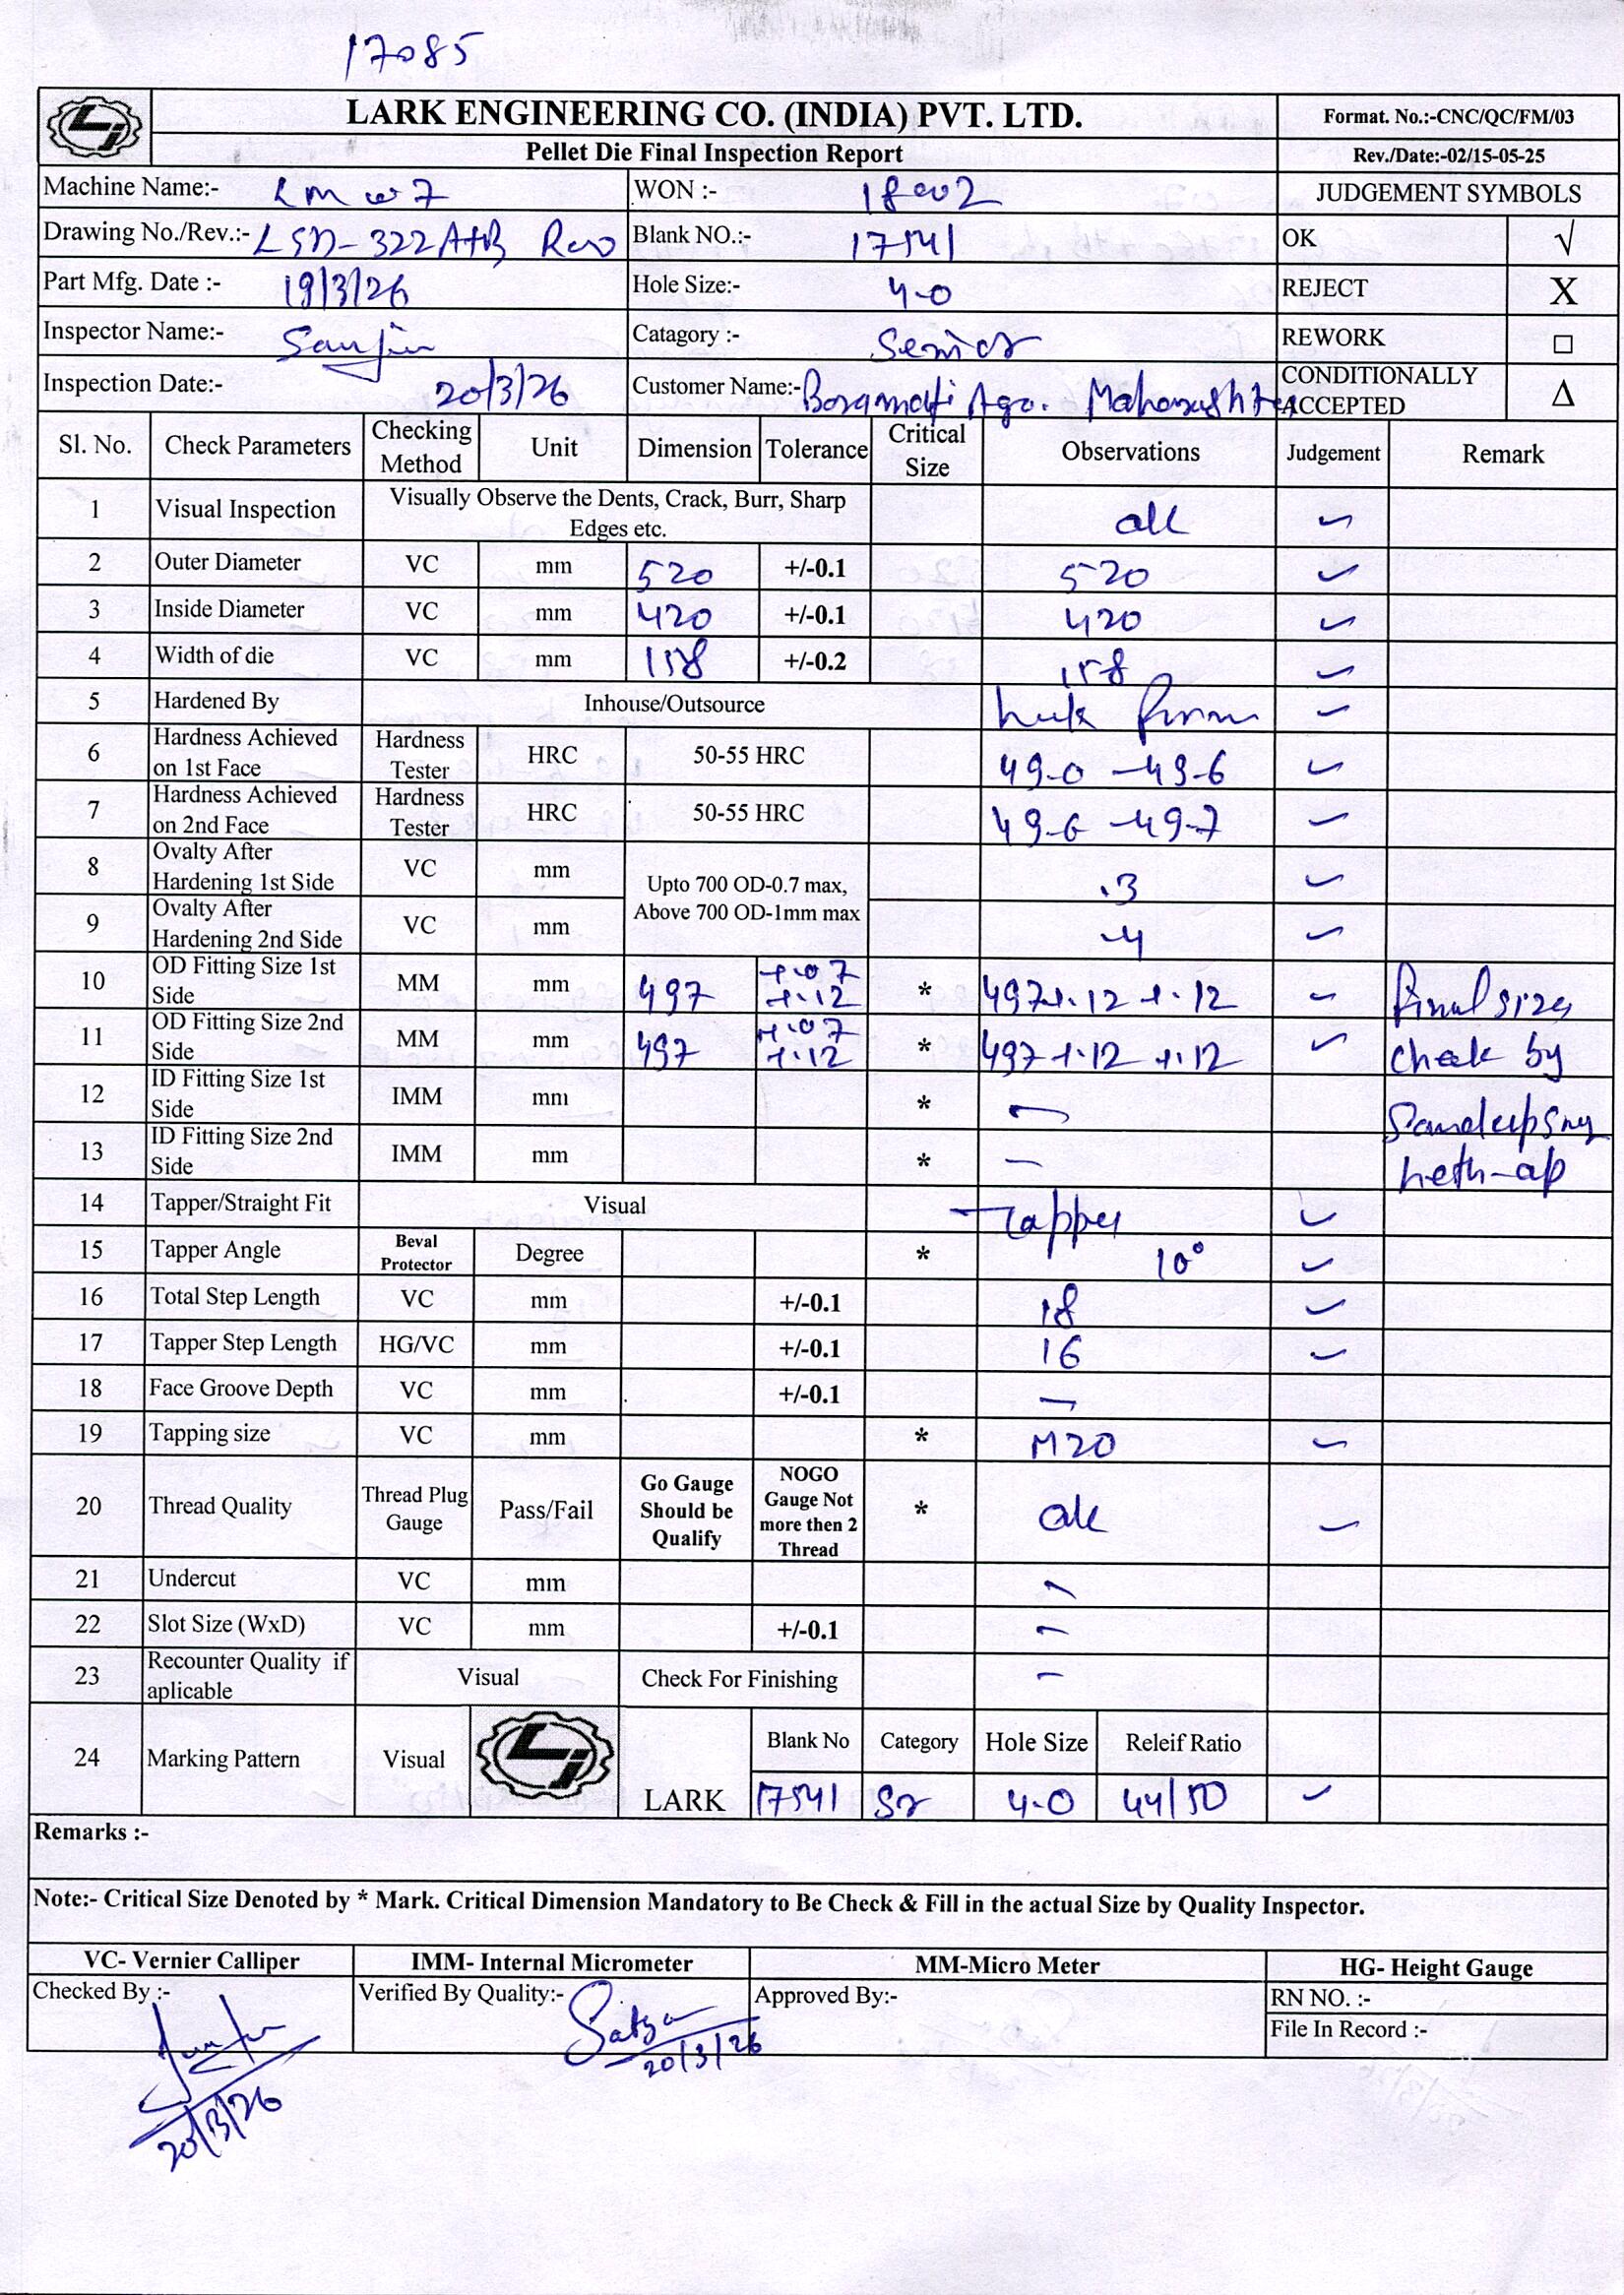 17085
LARK ENGINEERING CO. (INDIA) PVT. LTD.
Format. No.:-CNC/QC/FM/03
Pellet Die Final Inspection Report
Rev./Date:-02/15-05-25
Machine Name:- LMW7 WON :- 18002 JUDGEMENT SYMBOLS
Drawing No./Rev.:- LSD-322A+B Rev0 Blank NO.:- 17541 OK √
Part Mfg. Date :- 19/3/26 Hole Size:- 4.0 REJECT X
Inspector Name:- Sanjiv Catagory :- Senior REWORK □
Inspection Date:- 20/3/26 Customer Name:- Baramati Agro. Maharashtra CONDITIONALLY ACCEPTED Δ
Sl. No. Check Parameters Checking Method Unit Dimension Tolerance Critical Size Observations Judgement Remark
1 Visual Inspection Visually Observe the Dents, Crack, Burr, Sharp Edges etc. ok ✓
2 Outer Diameter VC mm 520 +/-0.1 520 ✓
3 Inside Diameter VC mm 420 +/-0.1 420 ✓
4 Width of die VC mm 158 +/-0.2 158 ✓
5 Hardened By Inhouse/Outsource ✓
6 Hardness Achieved on 1st Face Hardness Tester HRC 50-55 HRC 49.0 - 49.6 ✓
7 Hardness Achieved on 2nd Face Hardness Tester HRC 50-55 HRC 49.6 - 49.7 ✓
8 Ovalty After Hardening 1st Side VC mm Upto 700 OD-0.7 max, Above 700 OD-1mm max .3 ✓
9 Ovalty After Hardening 2nd Side VC mm .4 ✓
10 OD Fitting Size 1st Side MM mm 497 +.07 +.12 * 497+.12 +.12 ✓ final sizes
11 OD Fitting Size 2nd Side MM mm 497 +.07 +.12 * 497+.12 +.12 ✓ check by
12 ID Fitting Size 1st Side IMM mm * — Sandeep
13 ID Fitting Size 2nd Side IMM mm * —
14 Tapper/Straight Fit Visual Tapper ✓
15 Tapper Angle Beval Protector Degree * 10° ✓
16 Total Step Length VC mm +/-0.1 18 ✓
17 Tapper Step Length HG/VC mm +/-0.1 16 ✓
18 Face Groove Depth VC mm +/-0.1 —
19 Tapping size VC mm * M20 ✓
20 Thread Quality Thread Plug Gauge Pass/Fail Go Gauge Should be Qualify NOGO Gauge Not more then 2 Thread * ok ✓
21 Undercut VC mm —
22 Slot Size (WxD) VC mm +/-0.1 —
23 Recounter Quality if aplicable Visual Check For Finishing —
24 Marking Pattern Visual LARK Blank No Category Hole Size Releif Ratio
17541 Sr 4.0 44/50 ✓
Remarks :-
Note:- Critical Size Denoted by * Mark. Critical Dimension Mandatory to Be Check & Fill in the actual Size by Quality Inspector.
VC- Vernier Calliper IMM- Internal Micrometer MM-Micro Meter HG- Height Gauge
Checked By :- Verified By Quality:- Satya Approved By:- RN NO. :-
20/3/26 File In Record :-
20/3/26